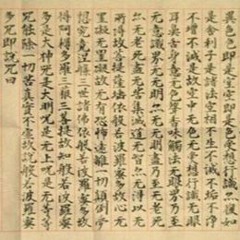 異色色即是空空即是色受想行識亦復如
是舍利子是諸法空相不生不滅不垢不淨
不增不減是故空中无色无受想行識无眼
耳鼻舌身意无色聲香味觸法无眼界乃至
无意識界无无明亦无无明盡乃至无老死
亦无老死盡无苦集滅道无智亦无得以无
所得故菩提薩埵依般若波羅蜜多故心无
罣礙无罣礙故无有恐怖遠離一切顛倒夢
想究竟涅槃三世諸佛依般若波羅蜜多故
得阿耨多羅三藐三菩提故知般若波羅蜜
多是大神咒是大明咒是无上咒是无等等
咒能除一切苦真實不虛故說般若波羅蜜
多咒即說咒曰